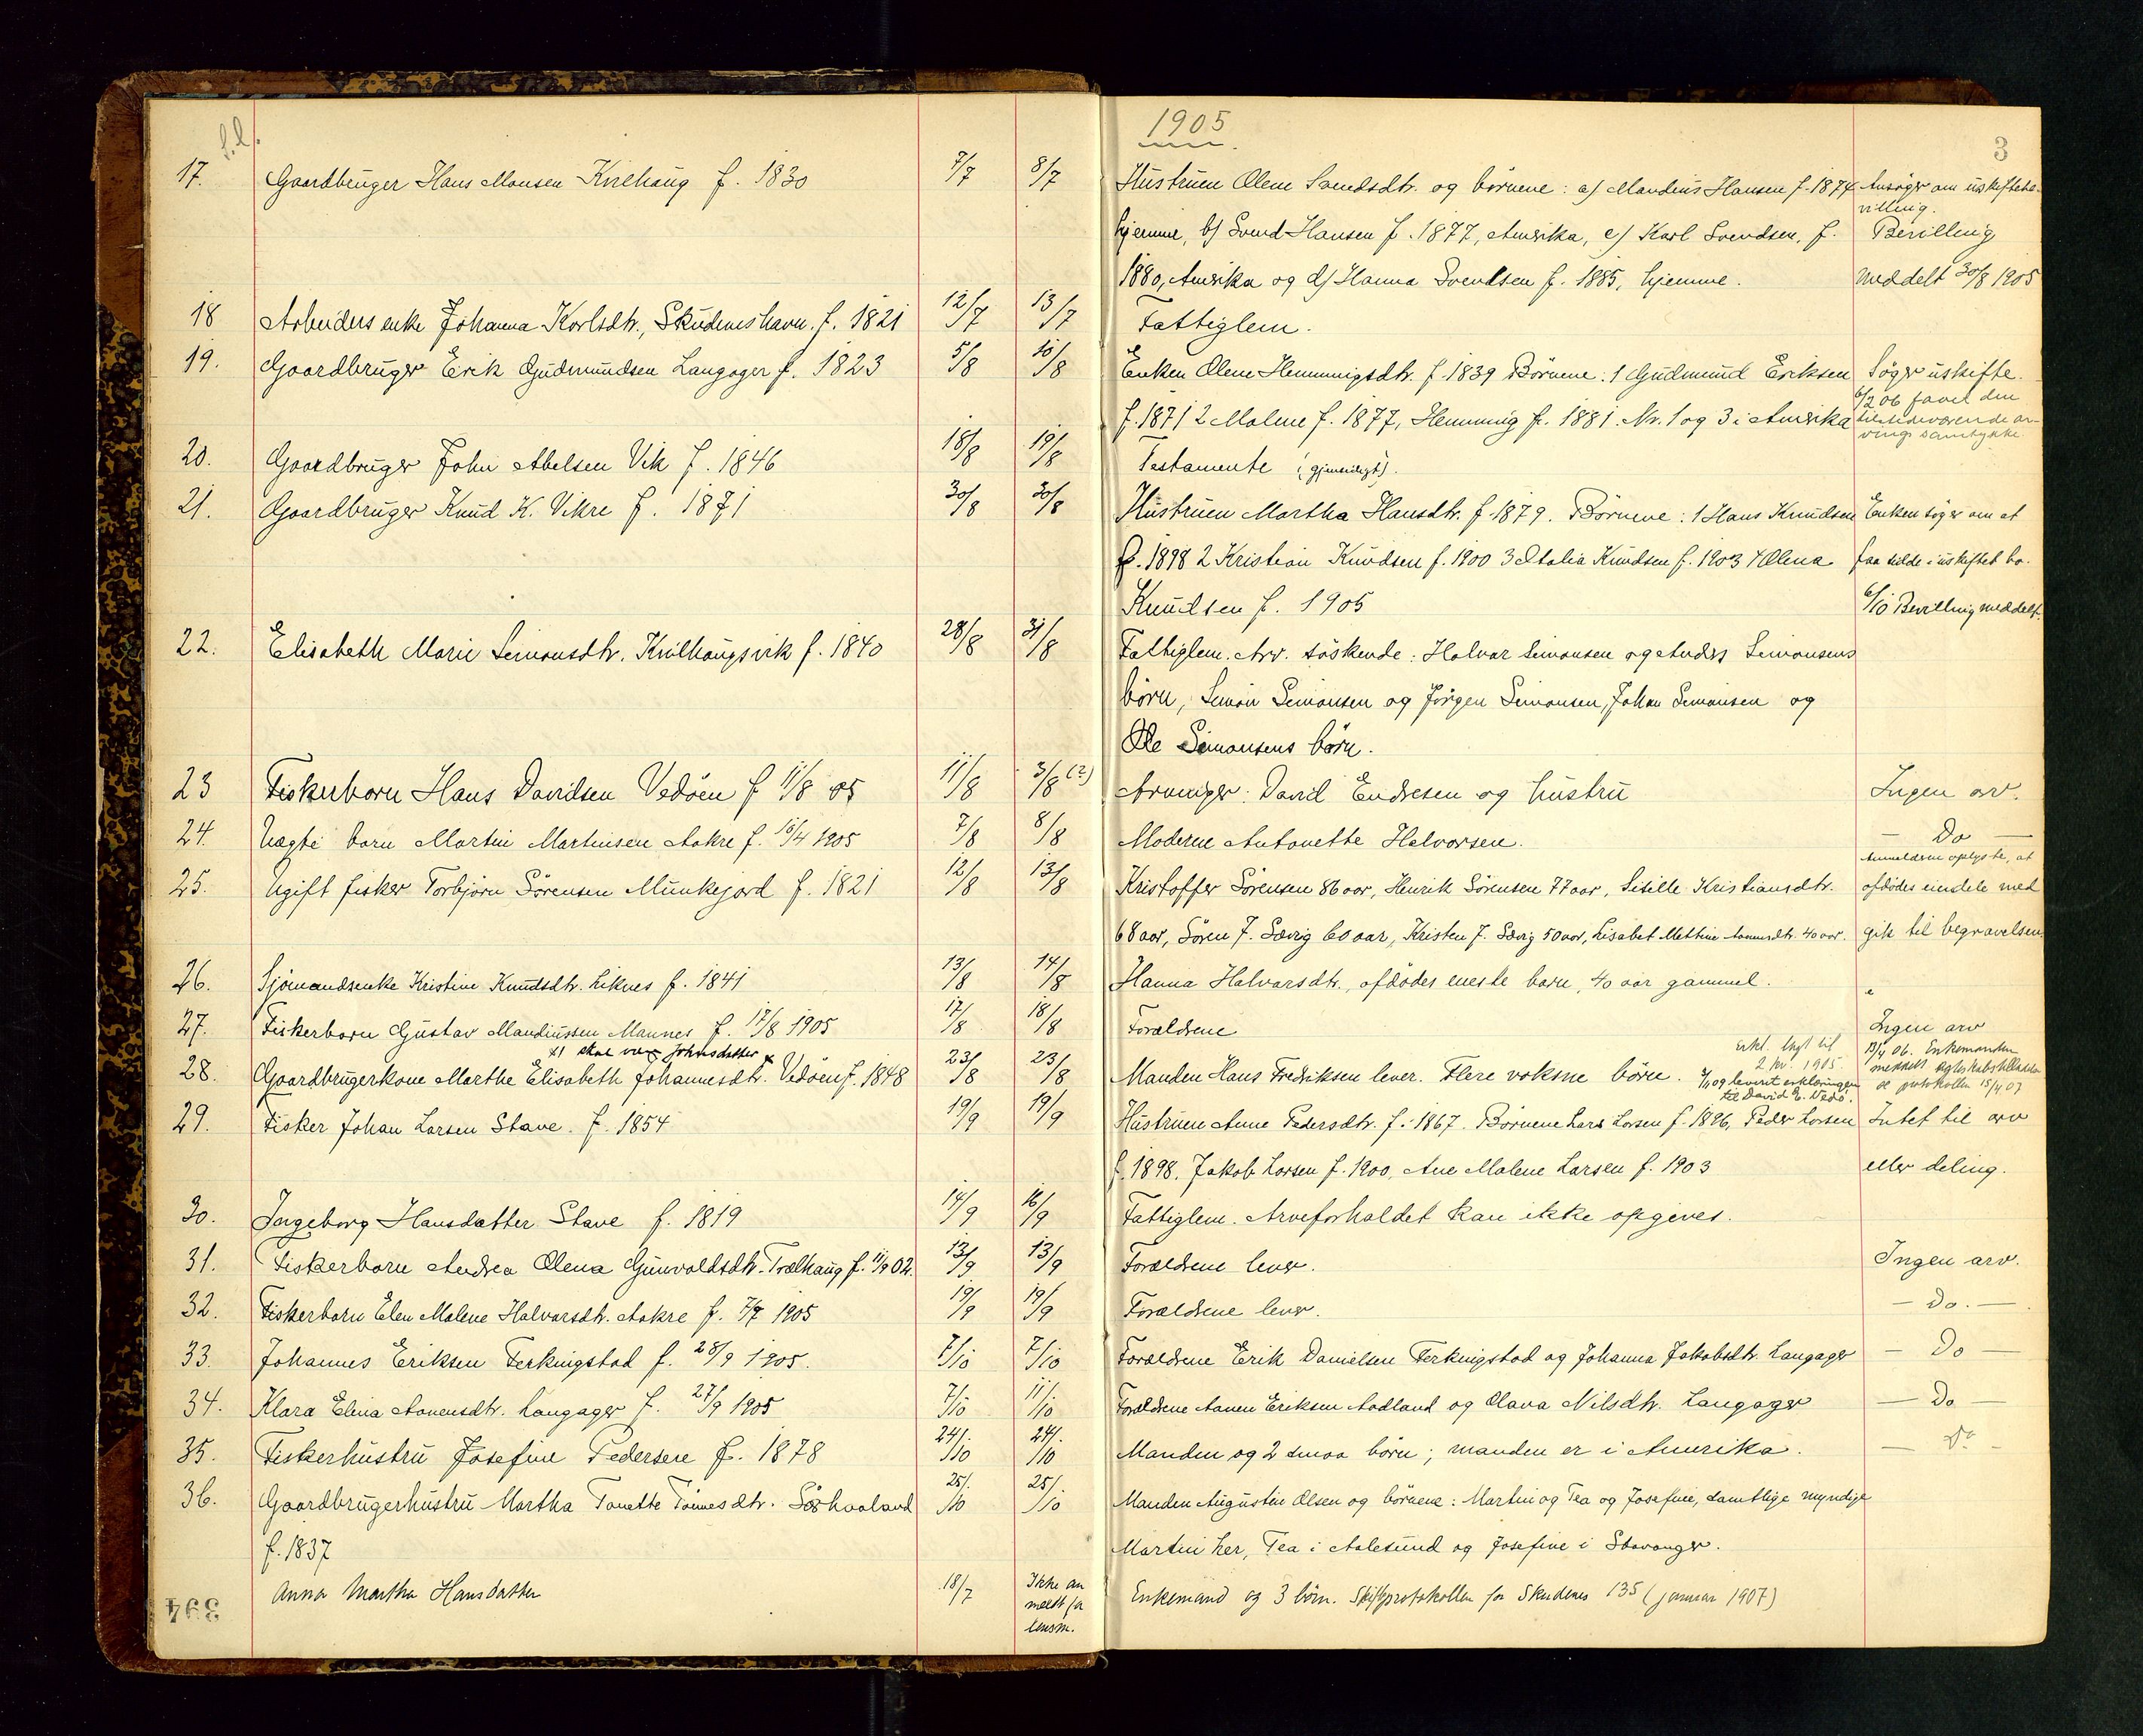 1905
3
17. Gaardbruger Hans Monsen Kvilhaug f. 1830 7/7 8/7 Hustruen Olene Svendsdtr. og börnene: a) Mandius Hansen f. 1874 Ansöger om uskiftebe-
villing.
hjemme, b) Svend Hansen f. 1877, Amerika, c) Karl Svendsen, f. Bevilling
1880, Amerika og d) Hanna Svendsen f. 1885, hjemme. meddelt 30/8 1905
18 Arbeiders enke Johanna Karlsdtr., Skudeneshavn. f. 1821 12/7 13/7 Fattiglem.
19. Gaardbruger Erik Gudmundsen Langager f. 1823 5/8 10/8 Enken Olene Hemmingsdtr. f. 1839 Börnene: 1 Gudmund Eriksen Söger uskifte.
f. 1871 2 Malene f. 1877, Hemming f. 1881. Nr. 1 og 3 i Amerika 6/2 06 favel den
tilstedeværende ar-
vings samtykke
20. Gaardbruger John Abelsen Vik f. 1846 18/8 19/8 Testamente (gjensidigt).
21. Gaardbruger Knud K. Vikre f. 1871 30/8 30/8 Hustruen Martha Hansdtr. f. 1879. Börnene: 1 Hans Knudsen Enken söger om at
f. 1898 2 Kristian Knudsen f. 1900 3 Italia Knudsen f. 1903 4 Olena faa sidde i uskiftet bo.
Knudsen f. 1905 6/10 Bevilling meddelt.
22. Elisabeth Marie Simonsdtr. Kvilhaugsvik f. 1840 28/8 31/8 Fattiglem. Arv. söskende: Halvar Simonsen og Anders Simonsens
börn, Simon Simonsen og Jörgen Simonsen, Johan Simonsen og
Ole Simonsens börn.
23 Fiskerbarn Hans Davidsen Vedöen f 11/8 05 11/8 3/8 (?) Arvinger: David Endresen og hustru Ingen arv.
24. Uægte barn Martin Martinsen Aakre f. 15/4 1905 7/8 8/8 Moderen Antonette Halvorsen. — Do —
Anmelderen oplyste, at
25. Ugift fisker Torbjörn Sörensen Munkejord f. 1821 12/8 13/8 Kristoffer Sörensen 86 aar, Henrik Sörensen 77 aar, Sisille Kristiansdtr. afdödes eiendele med
68 aar, Sören J. Sævig 60 aar, Kristen J. Sævig 50 aar, Lisabet Mettine Aanensdtr. 40 aar. gik til begravelsen
26. Sjömandsenke Kristine Knudsdtr. Liknes f. 1841 13/8 14/8 Hanna Halvarsdtr., afdödes eneste barn, 40 aar gammel.
27. Fiskerbarn Gustav Mandiussen Mannes f. 17/8 1905 17/8 18/8 Forældrene Ingen arv
x) skal være Johnsdatter
28. Gaardbrugerkone Marthe Elisabeth Johannesdtr. x Vedöen f. 1848 23/8 23/8 Manden Hans Fredriksen lever. Flere voksne börn. 13/4 06. Enkemanden
29. Fisker Johan Larsen Stave. f. 1854 19/9 19/9 Hustruen Anne Pedersdtr. f. 1867. Börnene Lars Larsen f. 1896, Peder Larsen Intet til arv
f. 1898. Jakob Larsen f. 1900, Ane Malene Larsen f. 1903 eller deling.
30. Ingeborg Hansdatter Stave f. 1819 14/9 16/9 Fattiglem. Arveforholdet kan ikke opgives.
31. Fiskerbarn Andrea Olena Gunvaldsdtr. Trælhaug f. 11/9 02. 13/9 13/9 Forældrene lever. Ingen arv.
32. Fiskerbarn Elen Malene Halvarsdtr. Aakre f. 7/7 1905 19/9 19/9 Forældrene lever. — Do. —
33. Johannes Eriksen Ferkingstad f. 28/9 1905. 7/10 7/10 Forældrene Erik Danielsen Ferkingstad og Johanna Jakobsdtr. Langager — Do —
34. Klara Elina Aanensdtr. Langager f. 27/9 1905 7/10 11/10 Forældrene Aanen Eriksen Aadland og Olava Nilsdtr. Langager — Do —
35. Fiskerhustru Josefine Pedersen f. 1878 24/10 24/10 Manden og 2 smaa börn; manden er i Amerika. — Do —
36. Gaardbrugerhustru Martha Tonette Tönnesdtr. Sörhaaland 25/10 25/10 Manden Augustin Olsen og börnene: Martin og Tea og Josefine, samtlige myndige
f. 1837 Martin her, Tea i Aalesund og Josefine i Stavanger.
Anna Martha Hansdatter 18/7 Ikke an
meldt fra
lensm. Enkemand og 3 börn. Skifteprotokollen for Skudenes 135 (januar 1907)
394